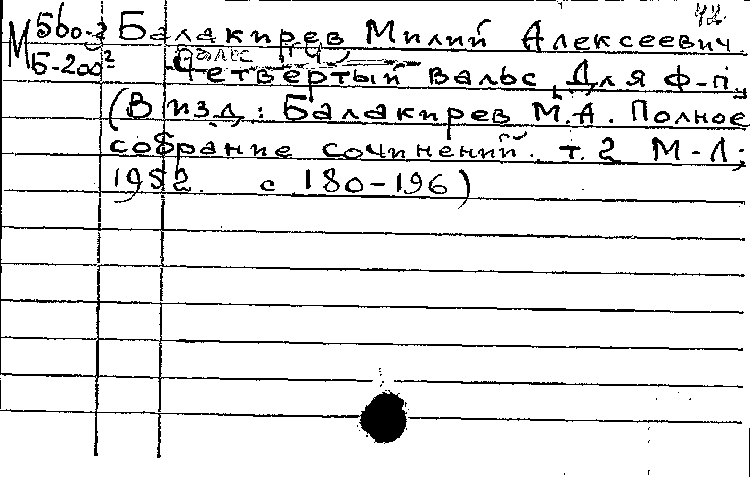 42
М 560-3 Балакирев Милий Алексеевич.
Б-200² Вальс №4
Четвертый вальс. Для ф-п.
(В изд.: Балакирев М.А. Полное
собрание сочинений. т.2 М-Л;
1952. с 180-196)